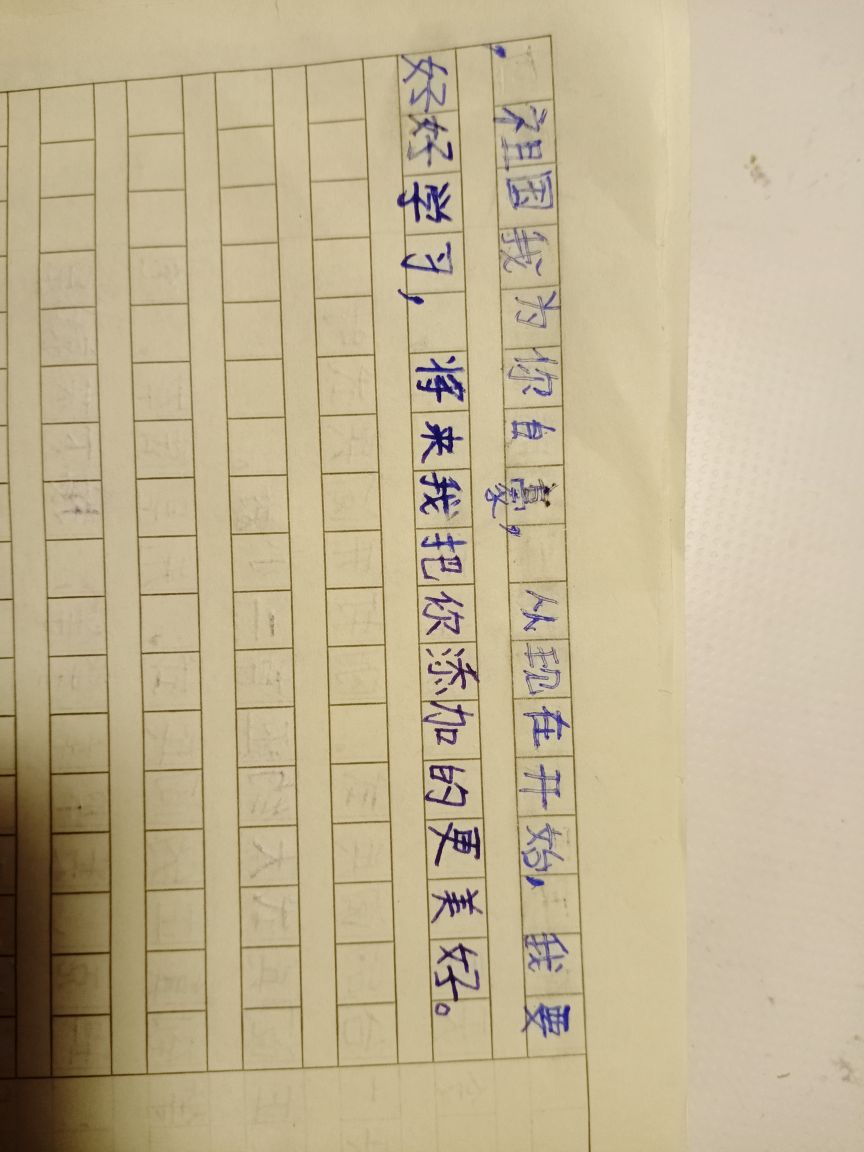 ，祖国我为你自豪，从现在开始，我要
好好学习，将来我把你添加的更美好。